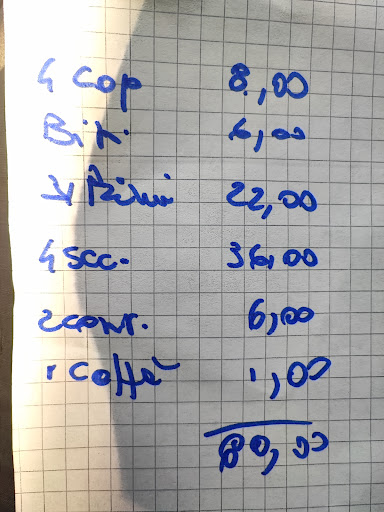 4 Cop 8,00
6,00
Primi 22,00
4 sec. 36,00
2 cont. 6,00
1 Caffè 1,00
80,00